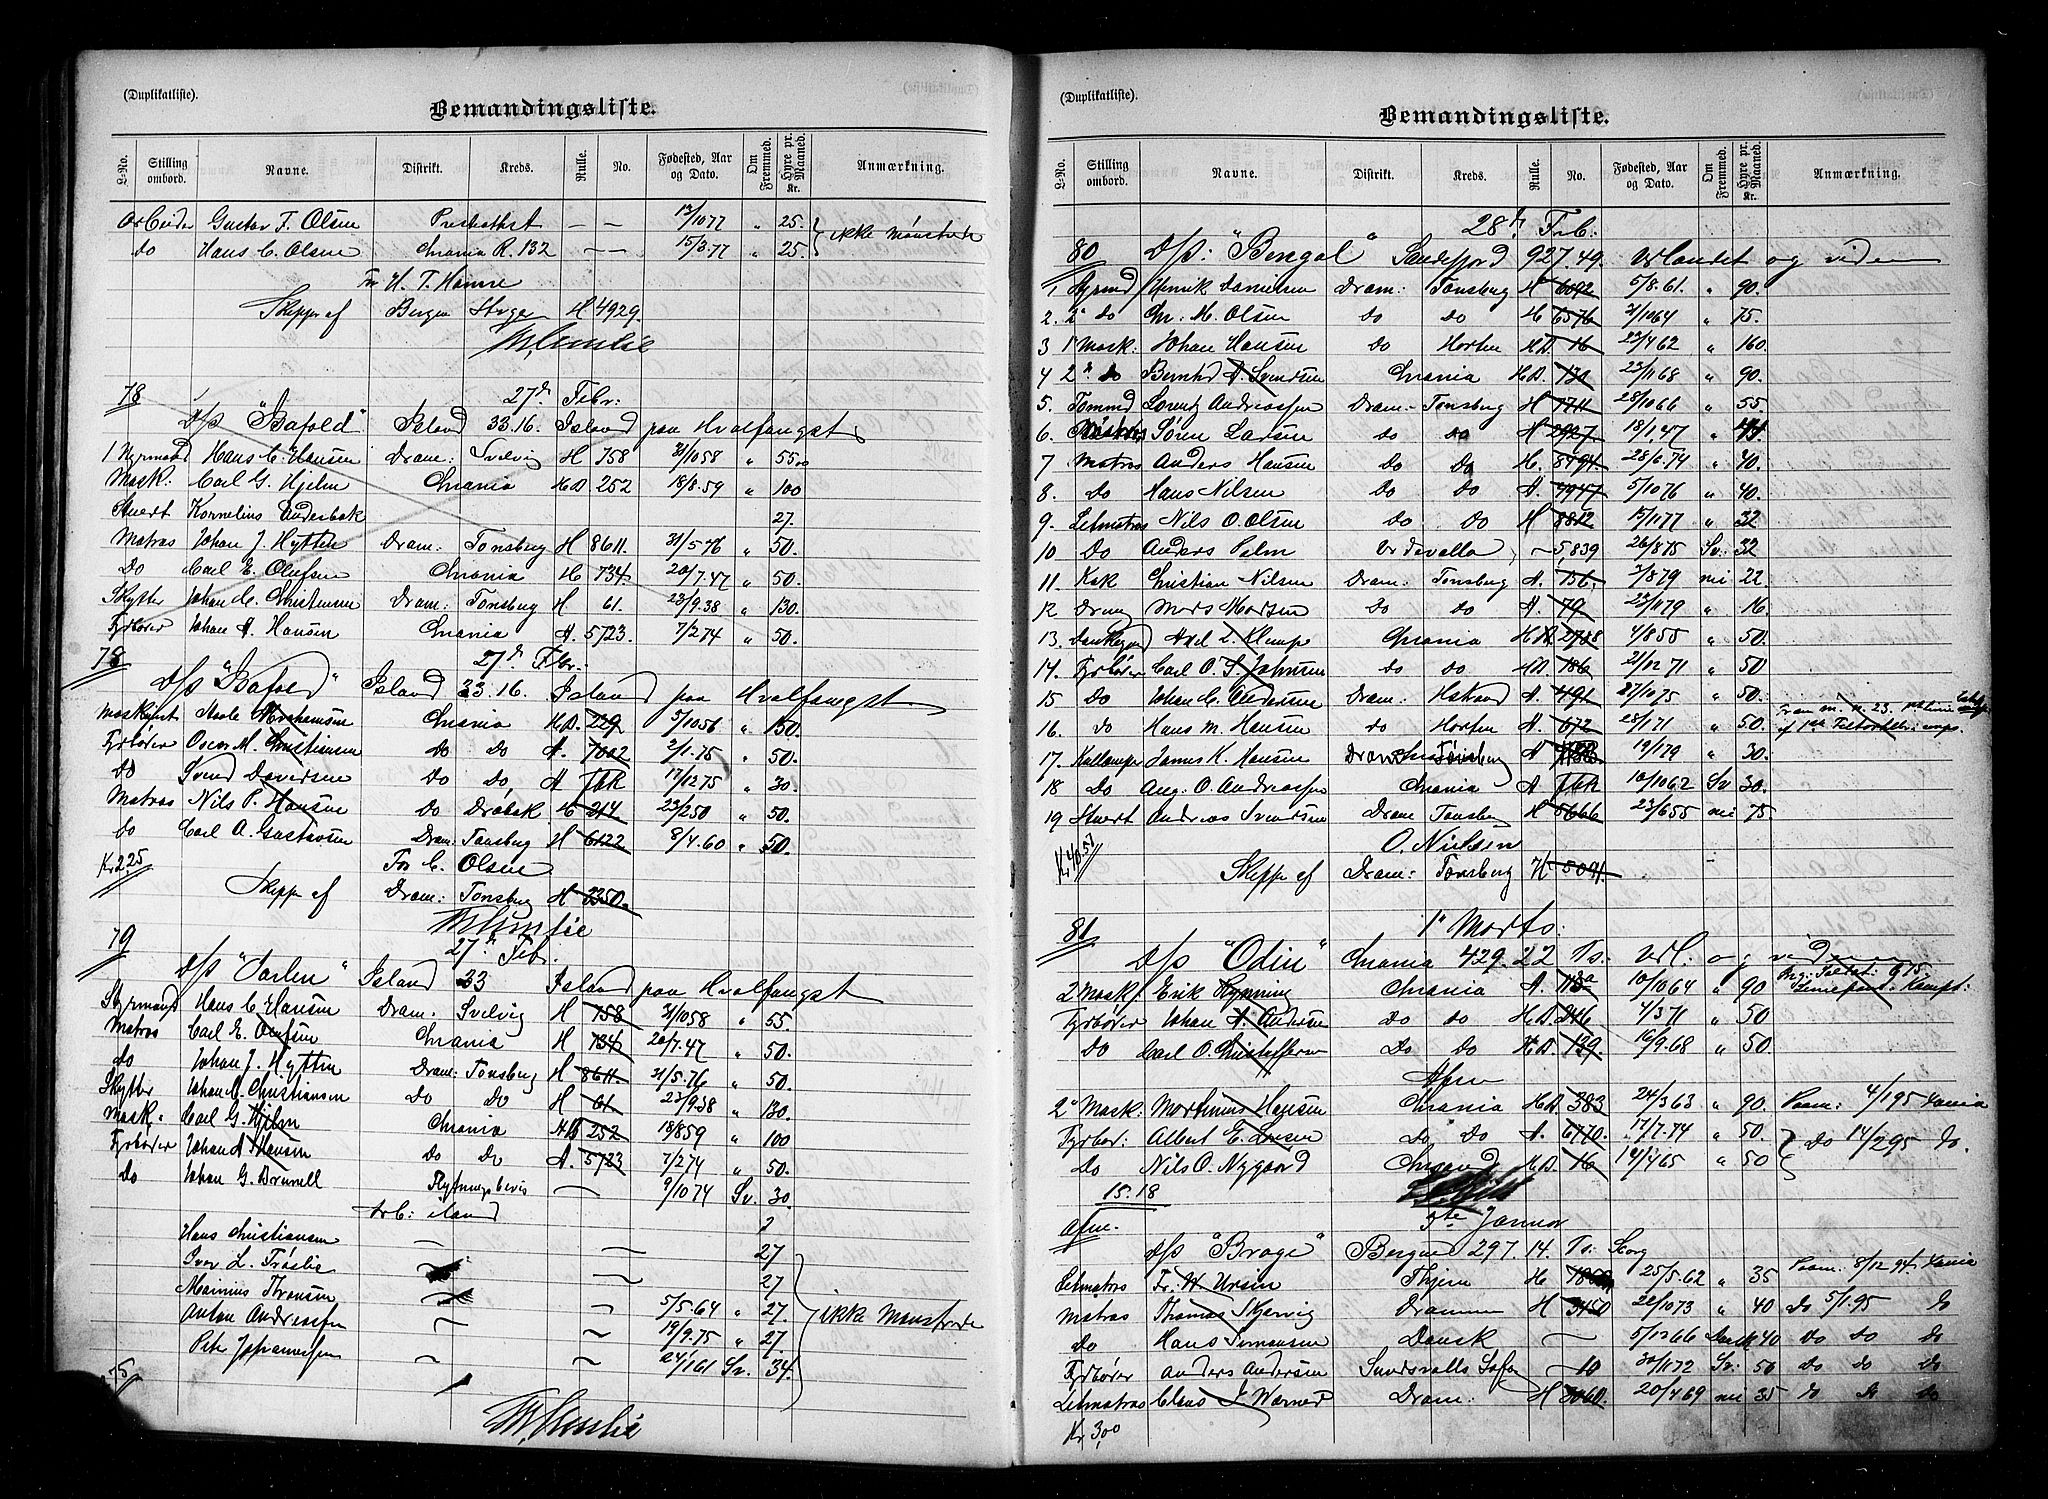 (Duplikatliste).
Bemandingsliste.
L-No. Stilling ombord. Navne. Distrikt. Kreds. Rulle. No. Fødested, Aar og Dato. Om Fremmed. Hyre pr. Maaned. Kr. Anmærkning.
Arbeider Gustav F. Olsen — — 13/10 77 " 25.
do Hans C. Olsen Chrania R. 132 — — 15/3.77 " 25. ikke mønstrede
For H. T. Hanne
Skipper af Bergen H 4929.
78 27d Febr:
D/S "Isafold" Island 33.16. Island paa Hvalfangst
1 Styrmand Hans C. Hansen Dram: Svelvig H 758 31/10 58 " 55 00
Mask. Carl G. Hjelm Chrania HD 252 18/8.59 " 100
Stuert Kornelius Anderbak 27.
Matros Johan J. Hytten Dram: Tønsberg H 8611. 31/5.76 " 50.
Do Carl E. Olufsen Chrania H 734 20/7.47 " 50.
Skytter Johan C. Christensen Dram: Tønsberg H 61. 23/9.38 " 130.
Fyrbøder Johan A. Hansen Chrania A. 5723 7/2 74 " 50.
78 27d Febr:
D/S "Isafold" Island 33.16. Island paa Hvalfangst
Maskinist Abrahamsen Chrania HD. 229 5/10 56 " 150.
Fyrbøder Oscar M. Christiansen Do Do A. 7002 2/1.75 " 50.
Do Svend Do Do A fbk 17/12 75 " 30.
Matros Nils P. Hansen Do Drøbak H 214 23/2 50 " 50.
do Carl A. Gustavsen Dram: Tønsberg H 6122 8/4.60 " 50.
Kr 2.25 For C. Olsen
Skipper af Dram: Tønsberg H 2350.
79 27d Febr.
D/S Island 33 Island paa Hvalfangst
Styrmand Hans C. Hansen Dram: Svelvig H 758 31/10 58 " 55.
Matros Carl E. Olufsen Chrania H 734 20/7.47 " 50.
do Johan J. Hytten Dram: Tønsberg H 8611. 31/5.76 " 50.
Skytter Johan C. Christiansen Do Do H 61 23/9.38 " 130.
Mask. Carl G. Hjelm Chrania HD 252 18/8 59 " 100
Fyrbøder Johan A Hansen Do Do A. 5723 7/2 74 " 50.
Do Johan G. Brunell Flytningsbevis — 9/10 74 Sv. 30.
Hans Christiansen — — 27
Iver L. — — 27
— — 5/5.64 " 27.
Anton Andreassen — — 19/9.75 " 27. ikke Mønstrede
Peter Johannessen — — 24/1 61 Sv. 34.
(Duplikatliste).
Bemandingsliste.
L-No. Stilling ombord. Navne. Distrikt. Kreds. Rulle. No. Fødested, Aar og Dato. Om Fremmed. Hyre pr. Maaned. Kr. Anmærkning.
28d Feb:
80 D/S: "Bengal" Sandefjord 927.49. Udlandet og videre
1 Styrmd Henrik Danielsen Dram: Tønsberg H 6092 5/8.61. " 90.
2. 2d do Chr. M. Olsen do do H 6576 31/10 64 " 75.
3 1 Mask: Johan Hansen Do Horten HD. 16 22/4 62 " 160.
4 2d do Bernhd A. Svendsen Chrania HD. 131 23/11 68 " 90.
5. Tømmd Lorentz Andreassen Dram: Tønsberg H 7711 28/10 66 " 55.
6. Søren Larsen do do H 2927 18/1.47 "
7 Matros Anders Hansen Do Do H. 8794. 28/6.74 " 40.
8. do Hans Nilsen Do Do A. 9947 5/10 76 " 40.
9. Letmatros Nils O. Olsen do Do H 8812 15/11 77 " 32
10 Do Anders Palm Uddevalla — 5,839 26/8 75 Sv: 32
11. Kok Christian Nilsen Dram: Tønsberg A. 756. 7/8 79 nei 22.
12 Dreng Mads Madsen Do do A. 79 23/11 79 " 16.
13. Axel L. Klemp Chrania HD. 2738 4/8 55 " 50.
14. Fyrbøder Carl O. Johnsen do do HD. 186 21/12 71 " 50
15 Do Johan C. Andersen Dram: A. 491 27/10 75 " 50.
16. do Hans M. Hansen do Horten A. 672 28/1 71 " 50.
17. Kullemper James K. Hansen Dram Tønsberg A 19/1 79 " 30.
18 Do Aug. O. Andreassen Chrania A fbk 10/10 62 Sv 30.
19 Stuert Andreas Svendsen Dram Tønsberg H 5666 23/6 55 nei 75.
O. Nielsen
Skipper af Dram: Tønsberg H 5091.
81 1d Marts:
D/S "Odin" Chrania 429.22 Ts. Udl. og videre
2 Mask Erik Rynning Chrania A. 113a 10/10 64 " 90
Fyrbøder Johan A. Andersen Do do HD. 246 4/3 71 " 50
do Carl O. Christoffersen Do Do HD. 139. 16/9.68 " 50.
Afm
2d Mask: Martinius Hansen Chrania HD. 383 24/3 63 " 90. Paam: 4/1 95 Xania
Fyrbød: Albert E. Larsen Do Do A. 6770. 17/7.74 " 50.
Do Nils O. Nygaard Chrsand HD. 16 14/4 65 " 50 Do 14/2 95 do.
15.18
Afm. 3te Januar
D/S "Brage" Bergen 297.14. Ts:
Letmatros Fr. W. Ursin H 25/5.62 " 35 Paam: 8/12 94. Xania
Matros Thomas Skjervig Drammen H 3450 22/10 73 " 40 do 5/1.95 do
do Hans Simonsen Dansk — 5/12 66 Dansk 40 Do Do Do
Fyrbøder Anders Andersen Sundsvalls — 10 30/1 72 Sv: 50 Do Do Do
Letmatros Claus J. Warner Dram: H 3060. 20/4 69 nei 35 do do Do
Kr 3,00